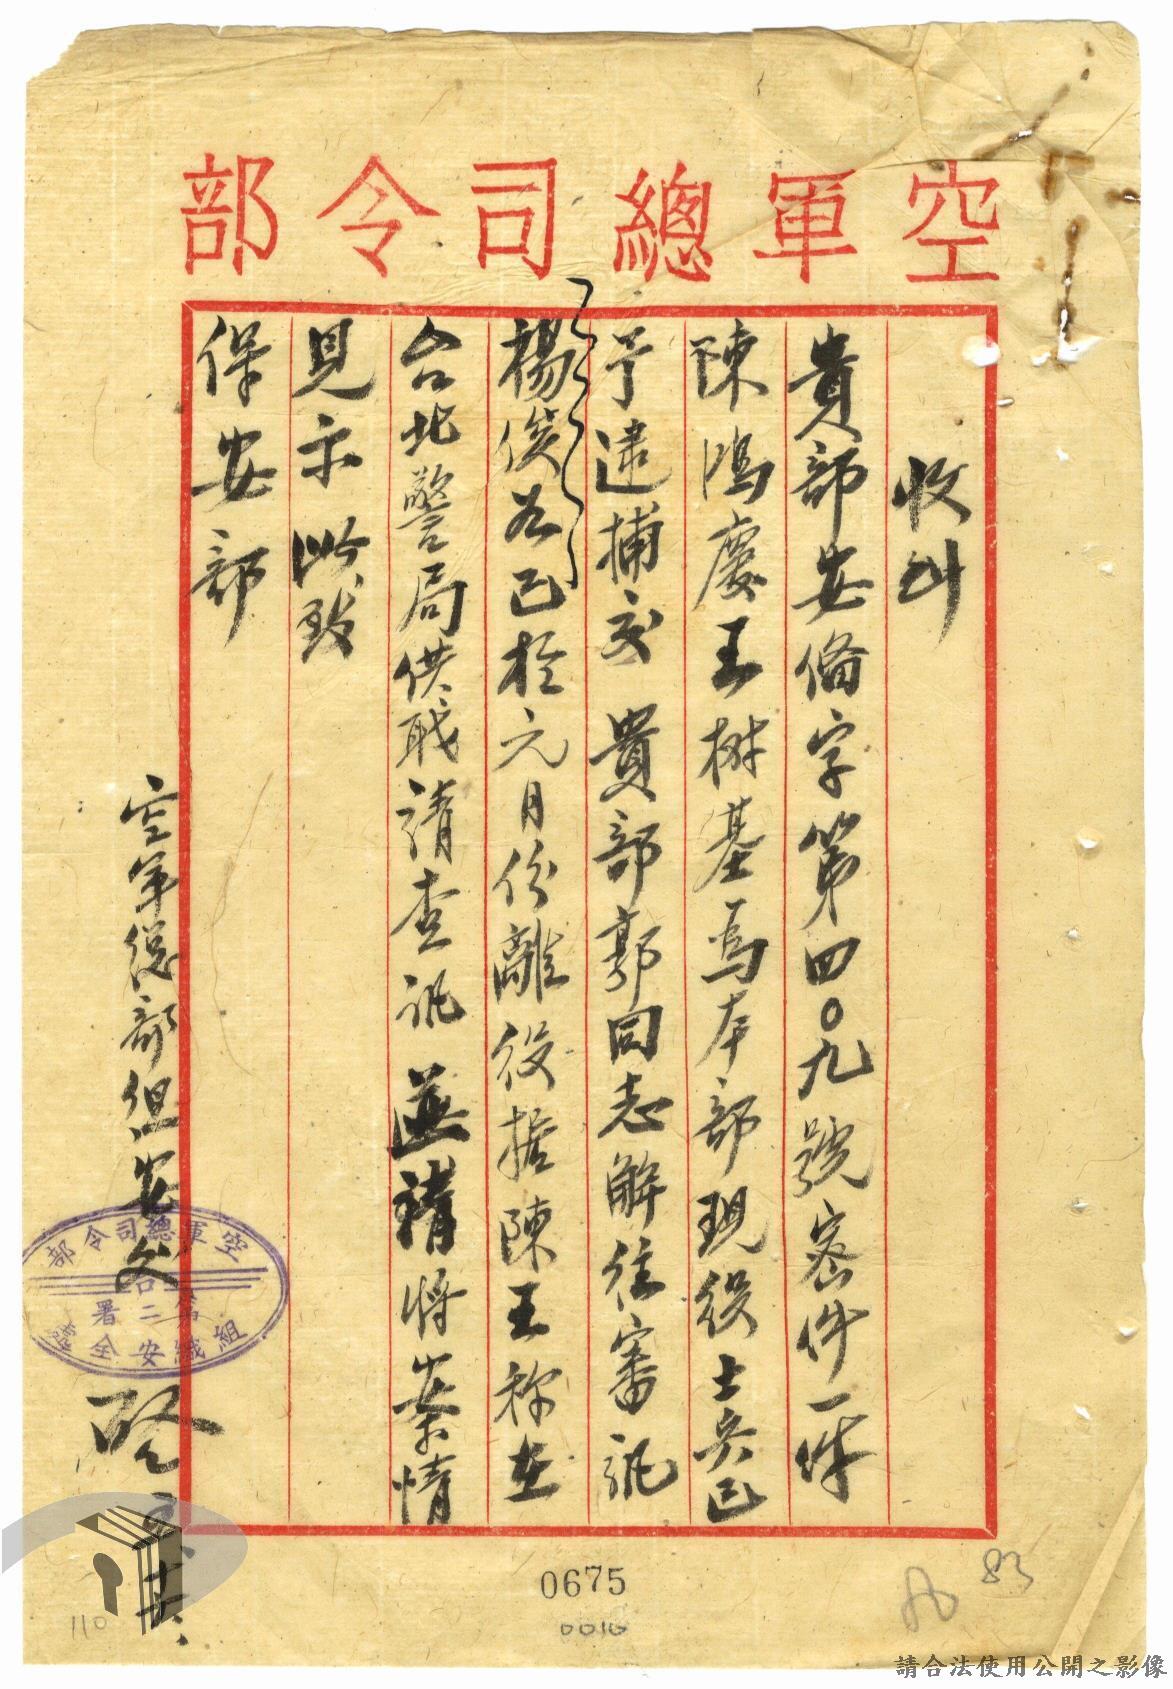 空軍總司令部
收到
貴部安偹字第四〇九號密件一件
陳鴻慶王树基為本部現役士兵已
予逮捕交 貴部郭同志解往審訊
楊俊 已於元月份離役據陳王称在
台北警局供职請查訊並請将案情
見示此致
保安部
空軍總部組安處
空軍總司令部
第二署
組織安全處
啓
0675
0010
110
83
請合法使用公開之影像